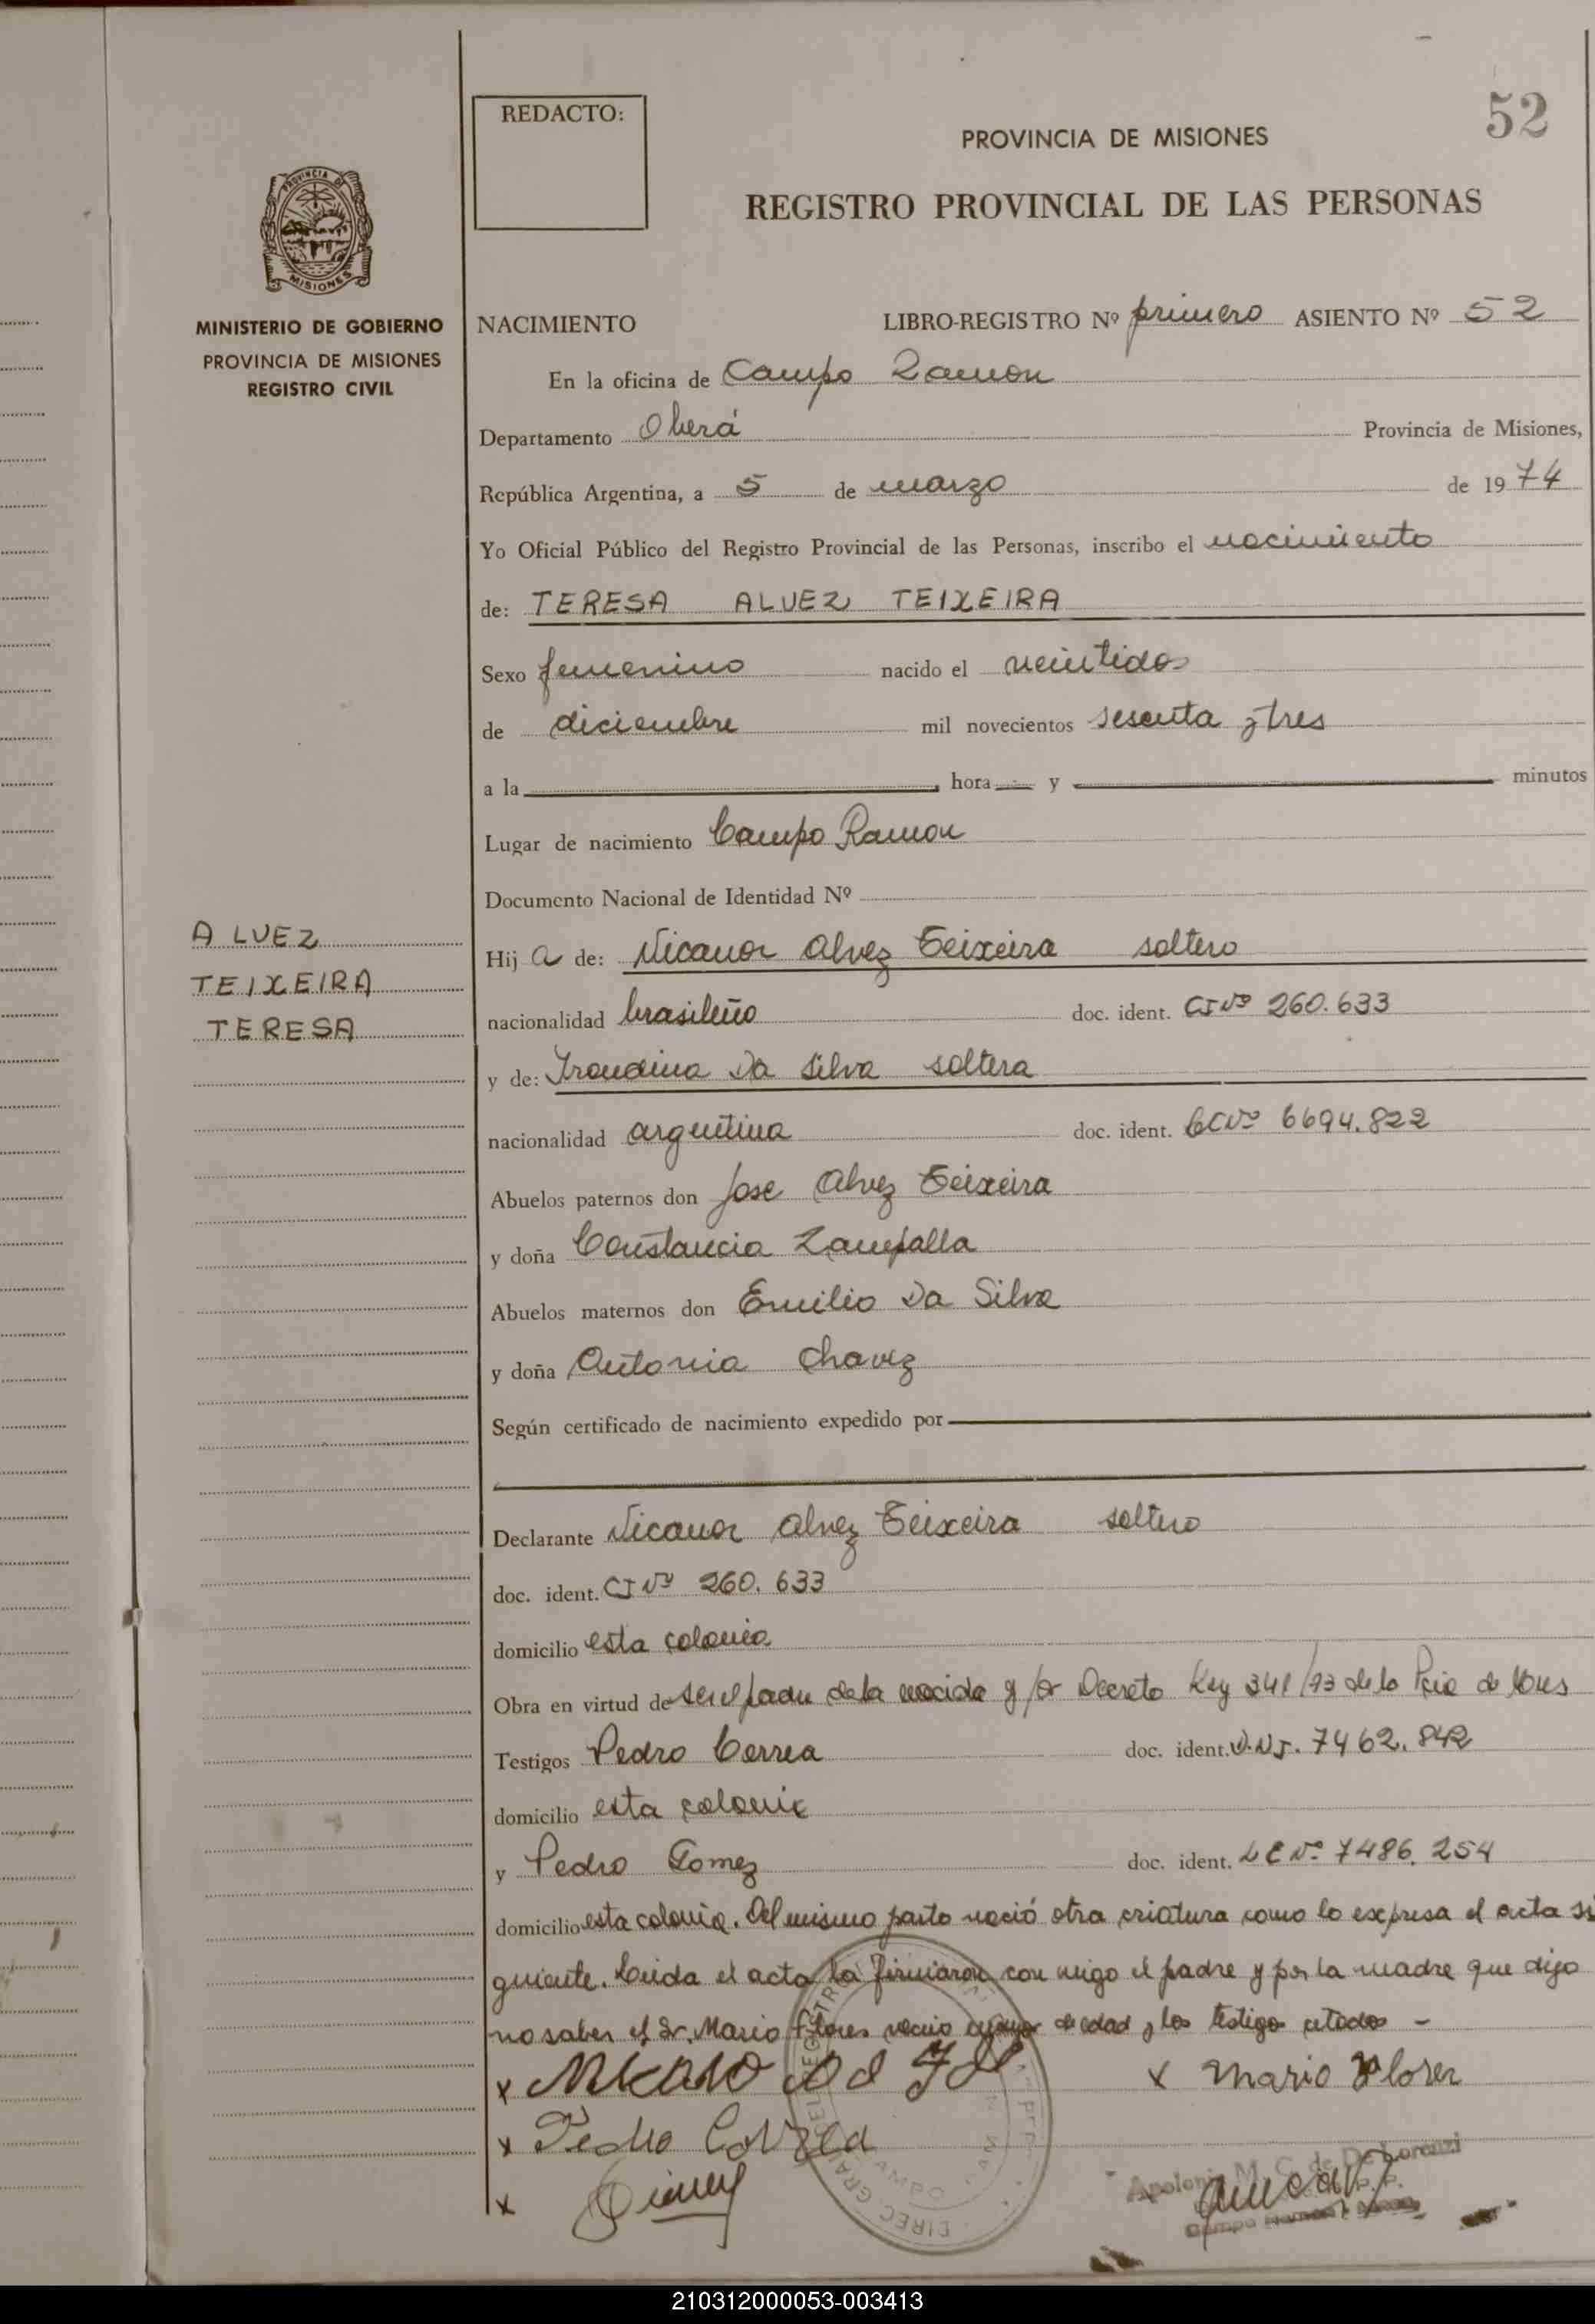 52
REDACTO:
PROVINCIA DE MISIONES
REGISTRO PROVINCIAL DE LAS PERSONAS
PROVINCIA DE
MISIONES
MINISTERIO DE GOBIERNO
PROVINCIA DE MISIONES
REGISTRO CIVIL
NACIMIENTO LIBRO-REGISTRO Nº primero ASIENTO Nº 52
En la oficina de Campo Ramon
Departamento Oberá Provincia de Misiones,
República Argentina, a 5 de marzo de 1974
Yo Oficial Público del Registro Provincial de las Personas, inscribo el nacimiento
de: TERESA ALVEZ TEIXEIRA
Sexo femenino nacido el veintidos
de diciembre mil novecientos sesenta y tres
a la hora y minutos
Lugar de nacimiento Campo Ramon
Documento Nacional de Identidad Nº
ALVEZ
TEIXEIRA
TERESA
Hij a de: Nicanor Alvez Teixeira soltero
nacionalidad brasileño doc. ident. CI Nº 260.633
y de: Iraudina Da Silva soltera
nacionalidad argentina doc. ident. LC Nº 6694.822
Abuelos paternos don Jose Alvez Teixeira
y doña Constancia
Abuelos maternos don Emilio Da Silva
y doña Antonia Chavez
Según certificado de nacimiento expedido por
Declarante Nicanor Alvez Teixeira soltero
doc. ident. CI Nº 260.633
domicilio esta colonia
Obra en virtud de ser el padre de la nacida y por Decreto Ley 341/73 de la Pcia de Mnes
Testigos Pedro Correa doc. ident. D.N.I. 7462.842
domicilio esta colonia
y Pedro Gomez doc. ident. LE Nº 7486.254
domicilio esta colonia. Del mismo parto nació otra criatura como lo expresa el acta si
guiente. Leida el acta la firmaron con migo el padre y por la madre que dijo
no saber el Sr. Mario Flores vecino mayor de edad y los testigo citados -
x x Mario Flores
x Pedro Correa
x
Apolonia M. C. de De Lorenzi
Campo Ramon
210312000053-003413